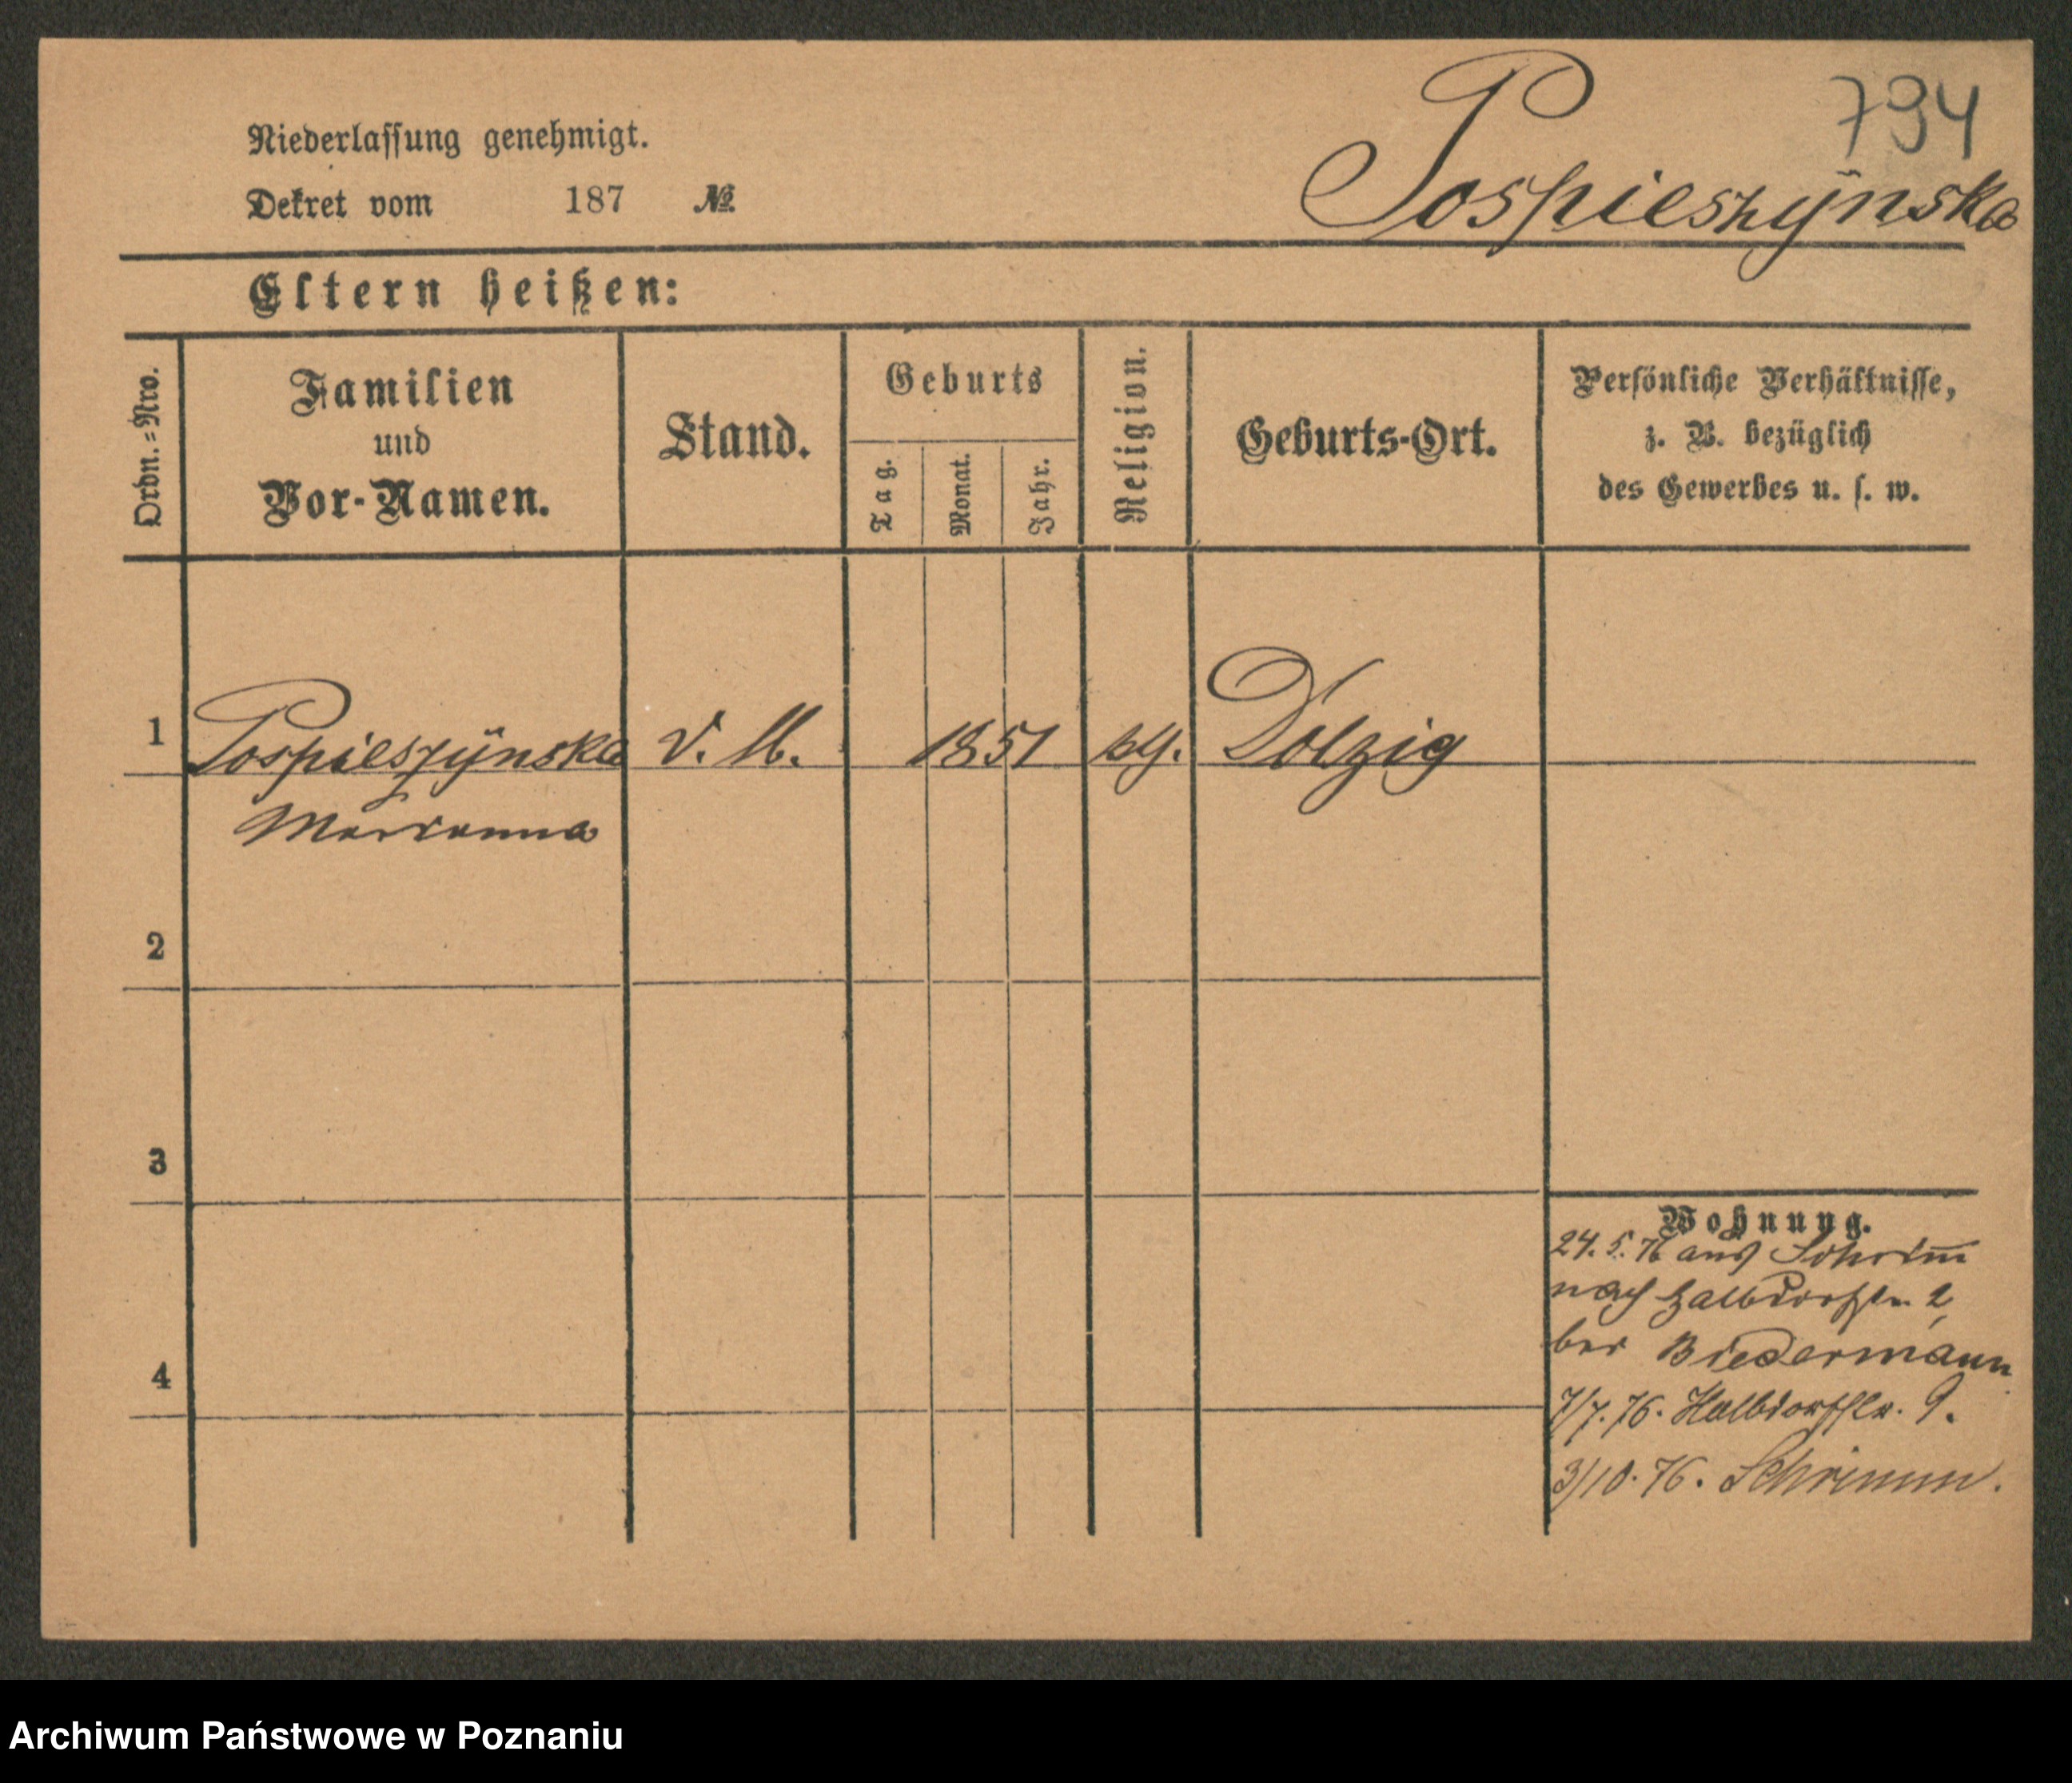 794
Niederlassung genehmigt.
Dekret vom 187 №
Pospieszÿnska
Eltern heißen:
Ordn.=Nro.
Familien
und
Vor-Namen.
Stand.
Geburts
Tag.
Monat.
Jahr.
Religion.
Geburts-Ort.
Persönliche Verhältnisse,
z. B. bezüglich
des Gewerbes u. s. w.
1 Pospieszÿnska 1851 Dolzig
Marianna
2
3
4
Wohnung.
24. 5. 76 aus Schrim̅
nach Halbdorfstr. 2
bei Biedermann
7/7. 76. Halbdorfstr. 9.
3/10. 76. Schrimm.
Archiwum Państwowe w Poznaniu